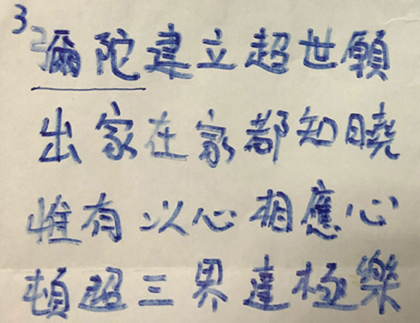 3 彌陀建立超世願
出家在家都知曉
惟有以心相應心
頓超三界達極樂